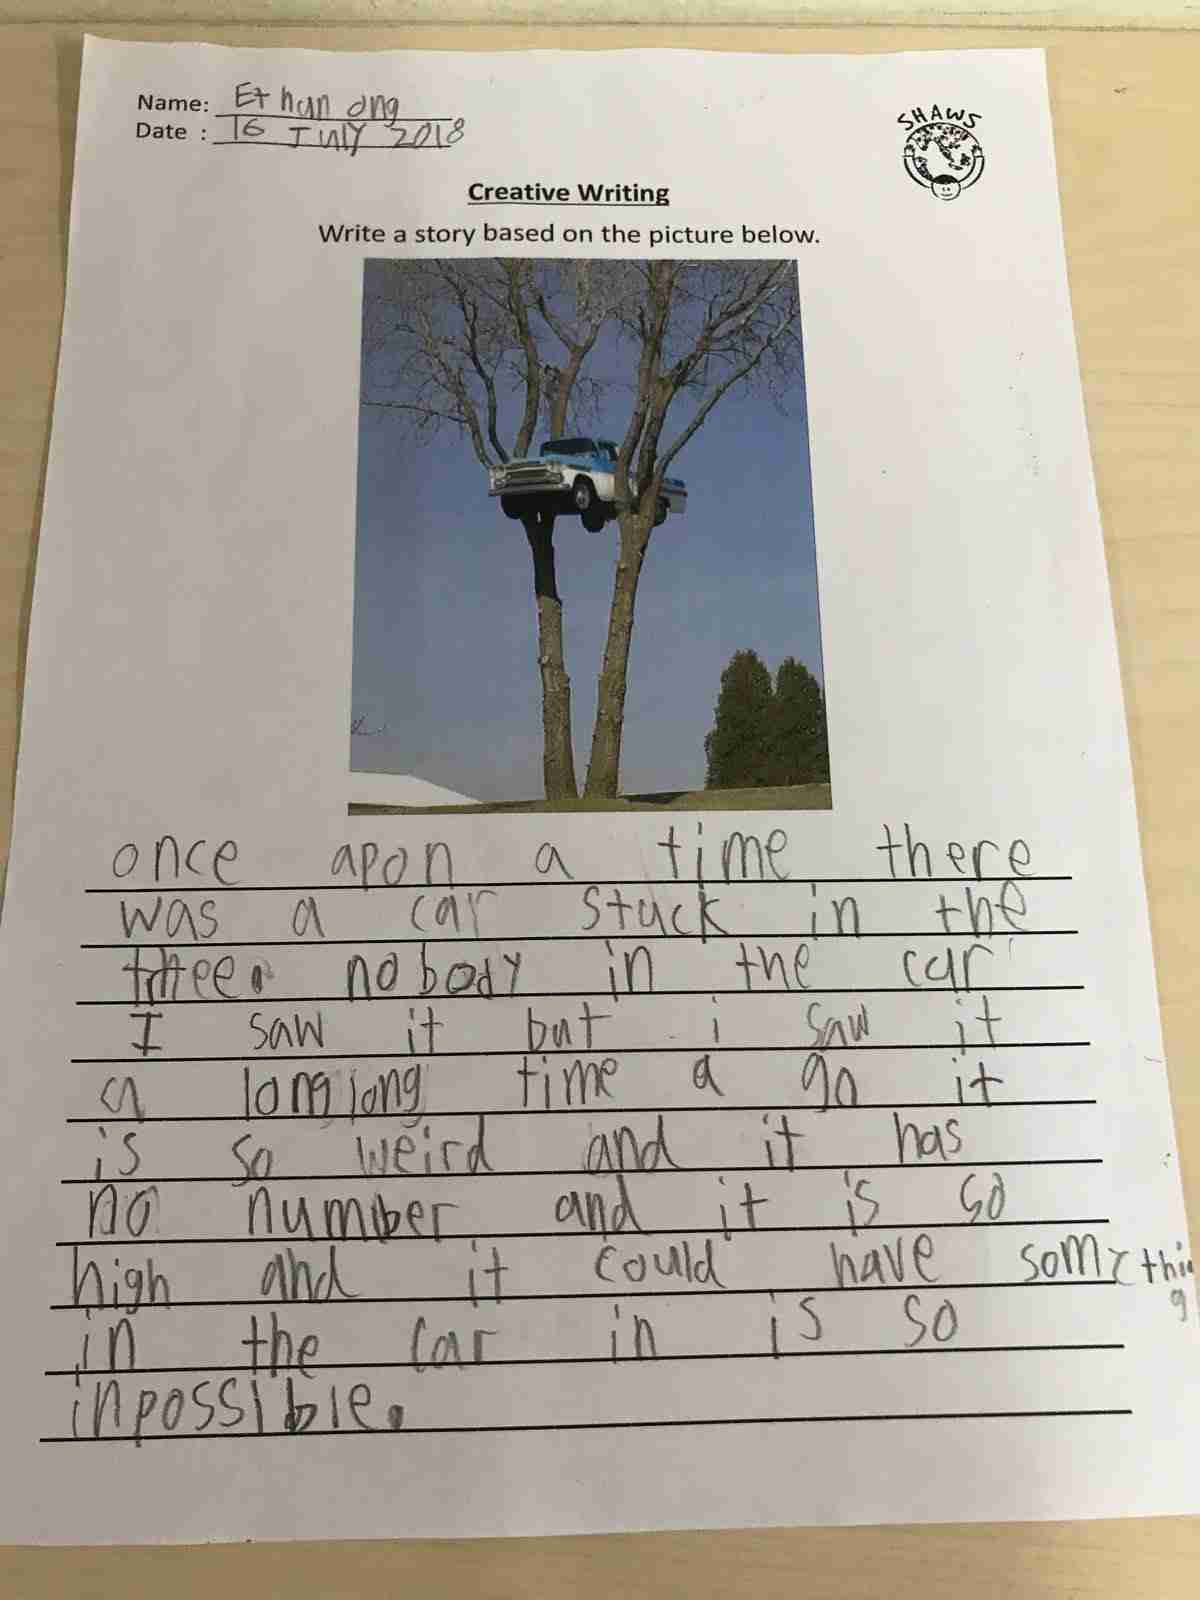 Name: Ethan ong
Date : 16 JUly 2018
SHAWS
Creative Writing
Write a story based on the picture below.
once apon a time there
was a car stuck in the
thee. nobody in the car
I saw it but i saw it
a long long time a go it
is so weird and it has
no number and it is so
high and it could have some thing
in the car in is so
inpossible.